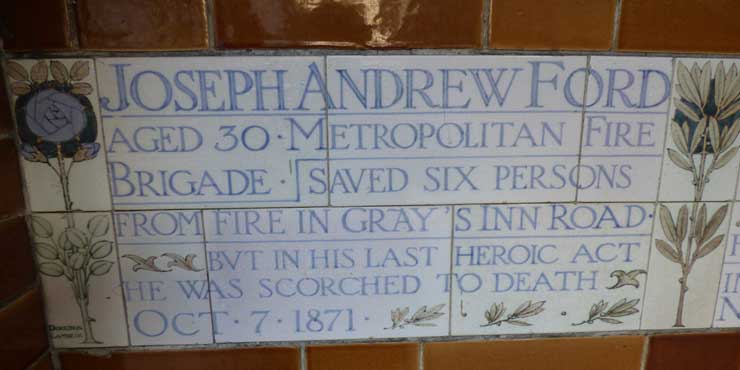 JOSEPH ANDREW FORD
AGED 30 · METROPOLITAN FIRE
BRIGADE · SAVED SIX PERSONS
FROM FIRE IN GRAY'S INN ROAD·
BVT IN HIS LAST HEROIC ACT
HE WAS SCORCHED TO DEATH
OCT · 7 · 1871 ·
DOULTON
LAMBETH